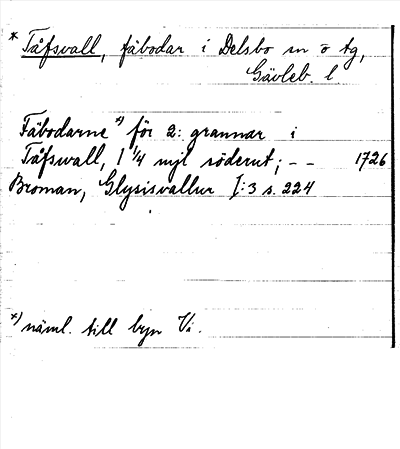 * Tåfsvall, fäbodar i Delsbo sn o tg,
Gävleb. l.
Fäbodarne *) för 2: grannar i
Tåfswall, 1 1/4 myl söderut; – – 1726
Broman, Glysisvallur I:3 s. 224
*) näml. till byn Vi.